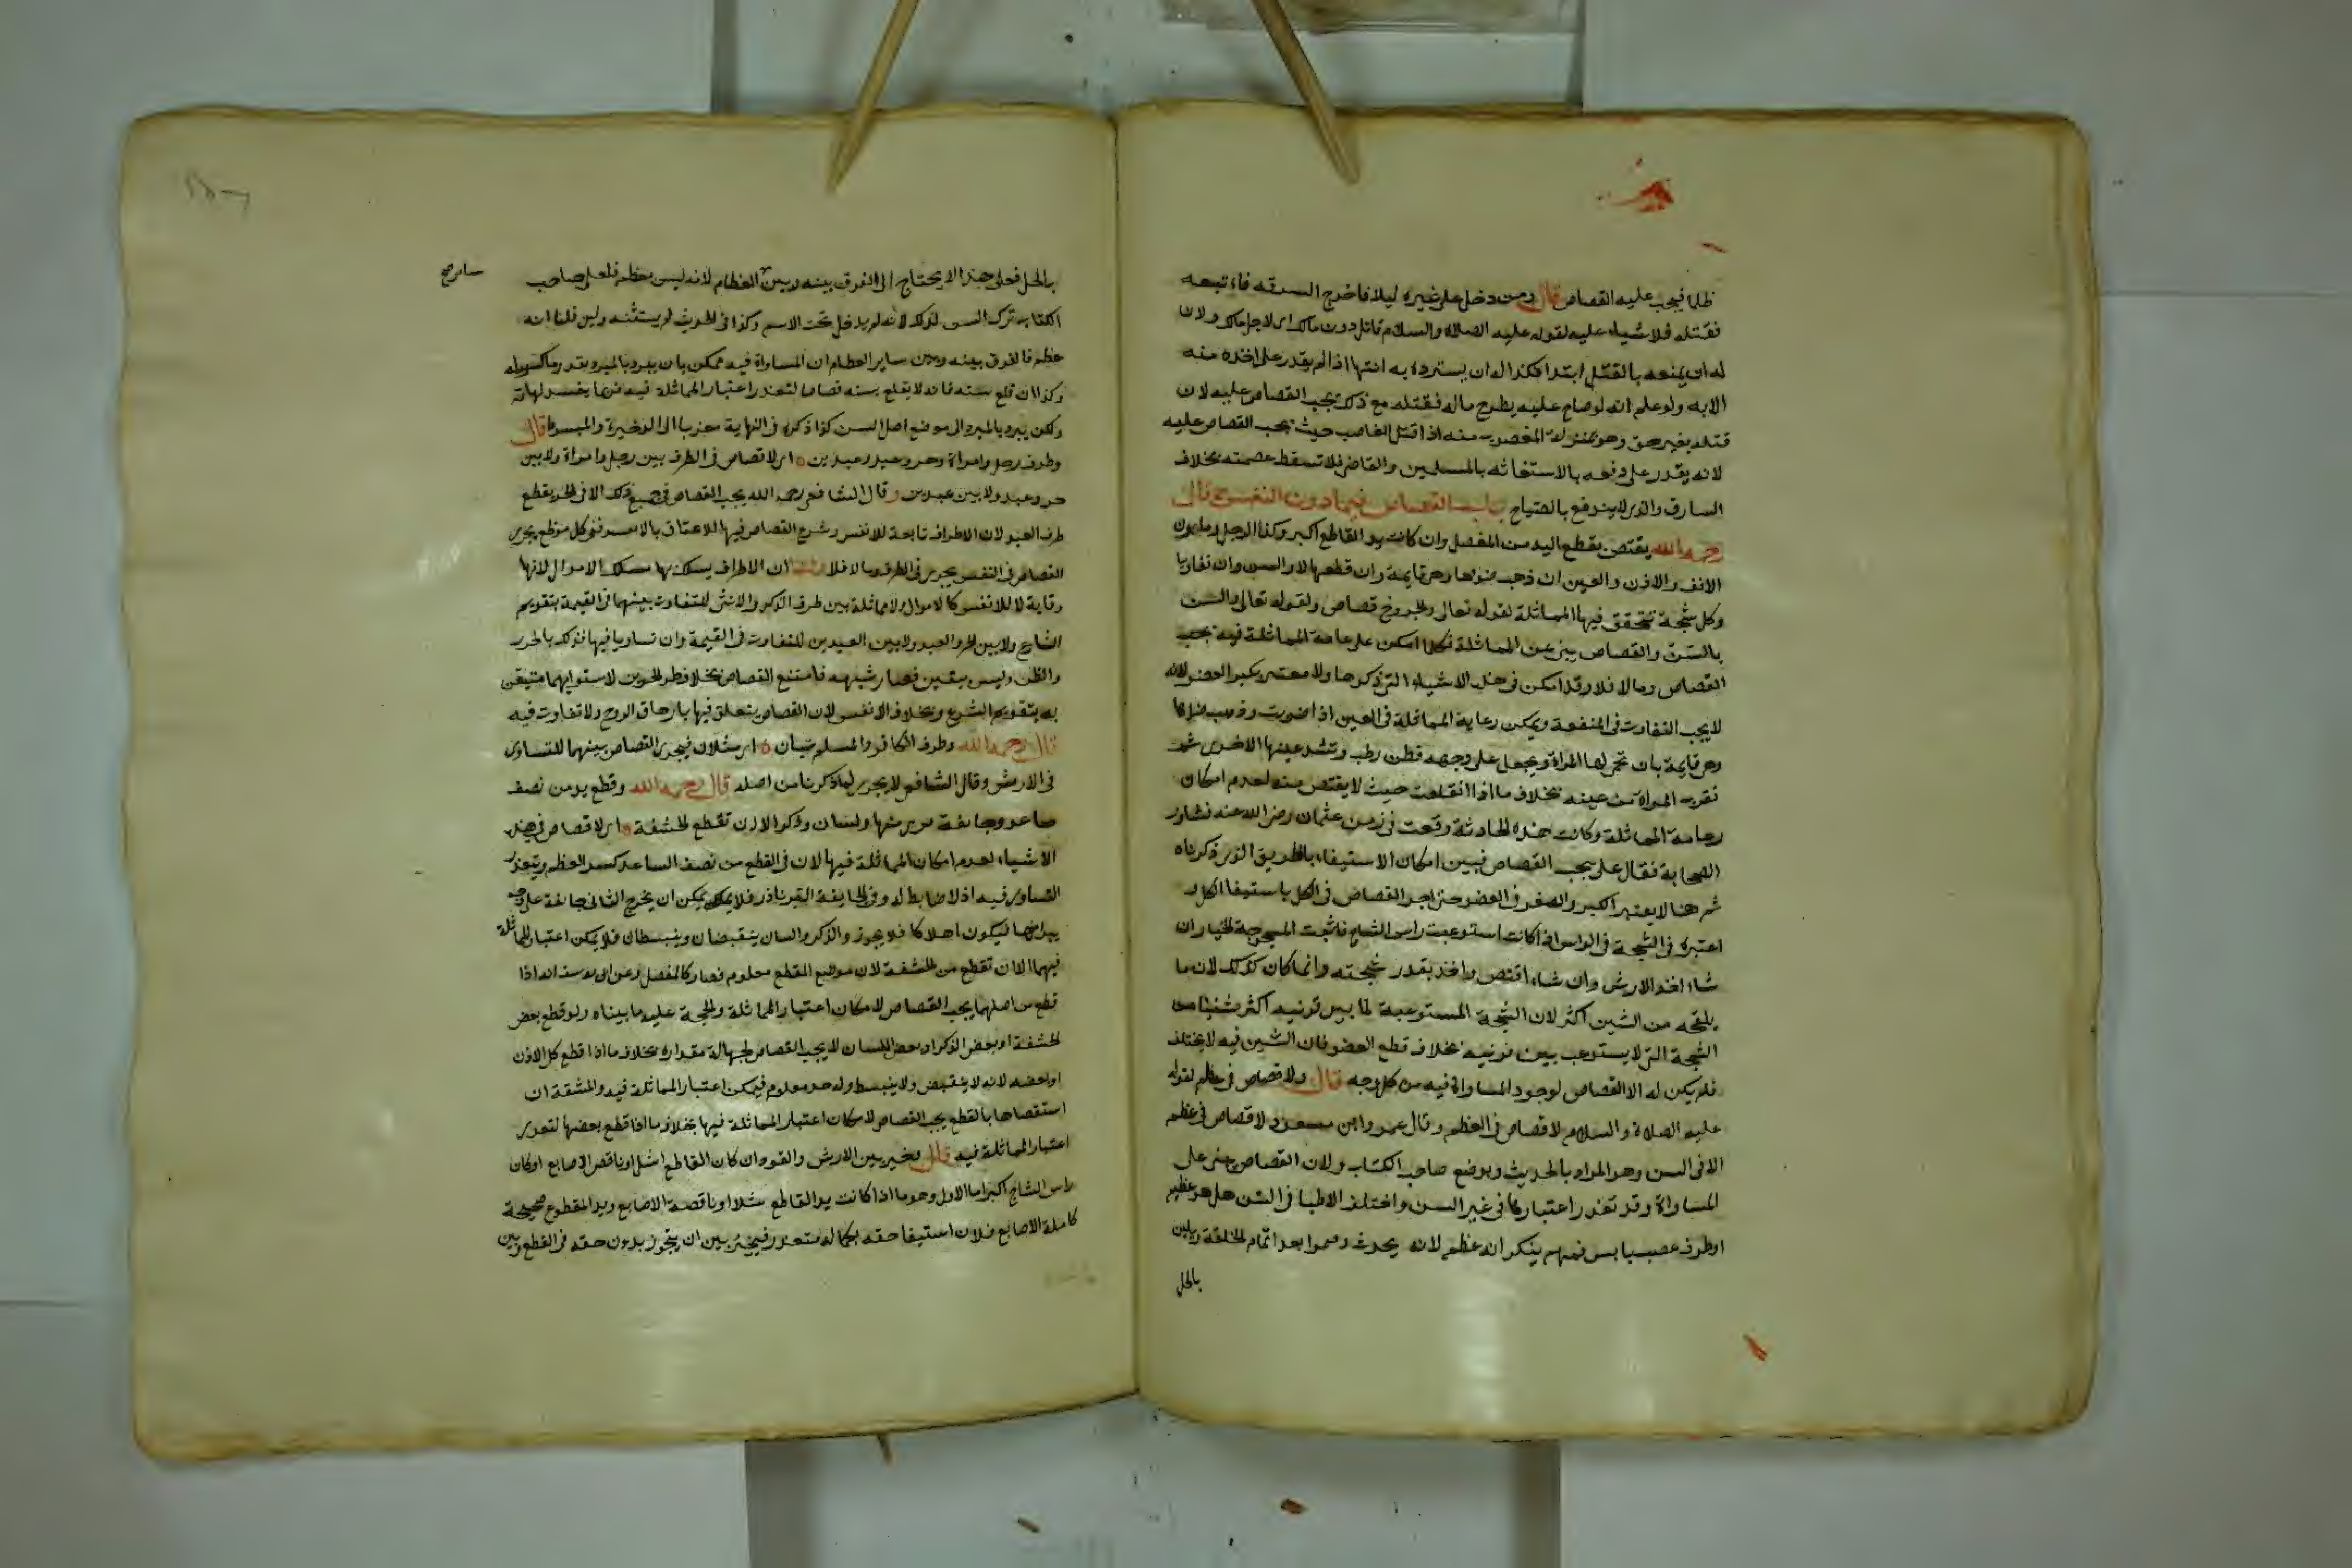 ظلما فيجب عليه القصاص قال ومن دخل على غيره ليلا فاخرج السرقة فاتبعه
فقتله فلا شيء عليه لقوله عليه الصلاة والسلام قاتل دون مالك اي لاجل مالك ولان
له ان يمنعه بالقتل ابتدا فكذا له ان يسترده به انتها اذا لم يقدر على اخذه منه
الا به ولو علم انه لو صاح عليه يطرح ماله فقتله مع ذلك يجب القصاص عليه لان
قتله بغير حق وهو بمنزلة المغصوب منه اذا قتل الغاصب حيث يجب القصاص عليه
لانه يقدر على دفعه بالاستغاثة بالمسلمين والقاضي فلا تسقط عصمته بخلاف
السارق والذي لا يندفع بالصياح باب القصاص فيما دون النفس قال
رحمه الله يقتص بقطع اليد من المفصل وان كانت يد القاطع اكبر وكذا الرجل ومارن
الانف والاذن والعين ان ذهب ضوءها وهي قايمة وان قلعها لا والسن وان تفاوتا
وكل شجة تتحقق فيها المماثلة لقوله تعالى والجروح قصاص ولقوله تعالى والسن
بالسن والقصاص ينبئ عن المماثلة فكلما امكن رعاية المماثلة فيه يجب
القصاص وما لا فلا وقد امكن في هذه الاشياء التي ذكرها ولا معتبر بكبر العضو لانه
لا يجب التفاوت في المنفعة ويمكن رعاية المماثلة في العين اذا ضربت وذهب ضوءها
وهي قايمة بان تحمى لها المراة ويجعل على وجهه قطن رطب وتشد عينها الاخرى ثم
تقرب المراة من عينه بخلاف ما اذا انقلعت حيث لا يقتص منه لعدم امكان
رعاية المماثلة وكانت هذه الحادثة وقعت في زمن عثمان رضي الله عنه فشاور
الصحابة فقال علي يجب القصاص فبين امكان الاستيفاء بالطريق الذي ذكرناه
ثم هنا لا يعتبر الكبر والصغر في العضو حتى اجرى القصاص في الكل باستيفا الكل و
اعتبره في الشجة في الراس اذا كانت استوعبت راس الشاج فاثبت للمشجوج الخيار ان
شاء اخذ الارش وان شاء اقتص واخذ بقدر شجته وانما كان كذلك لان ما
يلحقه من الشين اكثر لان الشجة المستوعبة لما بين قرنيه اكثر شينا من
الشجة التي لا يستوعب بين قرنيه بخلاف قطع العضو فان الشين فيه لا يختلف
فلم يكن له الا القصاص لوجود المساواة فيه من كل وجه قال ولا قصاص في عظم لقوله
عليه الصلاة والسلام لا قصاص في العظم وقال عمر وابن مسعود لا قصاص في عظم
الا في السن وهو المراد بالحديث وبوضع صاحب الكتاب ولان القصاص مبني على
المساواة وقد تعذر اعتبارها في غير السن واختلف الاطبا في السن هل هو عظم
او طرف عصب يابس فمنهم ينكر انه عظم لانه يحدث وينموا بعد اتمام الخلقة ويلين
بالخل
بالخل فعلى هذا لا يحتاج الى الفرق بينه وبين العظام لانه ليس بعظم فلعل صاحب
ساير صح
الكتاب ترك السن لذلك لانه لم يدخل تحت الاسم وكذا في الحديث لم يستثنه ولين قلنا انه
عظم فالفرق بينه وبين ساير العظام ان المساواة فيه ممكن بان يبرد بالمبرد بقدر ما كسر منه
وكذا ان قلع سنه فانه لا يقلع سنه قصاصا لتعذر اعتبار المماثلة فيه فربما يفسد لهاته
ولكن يبرد بالمبرد الى موضع اصل السن كذا ذكره في النهاية معزيا الى الذخيرة والمبسوط قال
وطرف رجل وامراة وحر وعبد وعبدين اي لا قصاص في الطرف بين رجل وامراة ولا بين
حر وعبد ولا بين عبدين وقال الشافعي رحمه الله يجب القصاص في جميع ذلك الا في الحر يقطع
طرف العبد لان الاطراف تابعة للانفس وشرع القصاص فيها للالحاق بالانفس ففي كل موضع يجري
القصاص في النفس يجري في الطرف وما لا فلا ولنا ان الاطراف يسلك بها مسلك الاموال لانها
وقاية للانفس كالاموال ولا مماثلة بين طرف الذكر والانثى للتفاوت بينهما في القيمة بتقويم
الشارع ولا بين الحر والعبد ولا بين العبدين للتفاوت في القيمة وان تساويا فيها فذلك بالحرز
والظن وليس بيقين فصار شبهة فامتنع القصاص بخلاف طرف الحرين لاستوايهما متيقن
به بتقويم الشرع وبخلاف الانفس لان القصاص يتعلق فيها بازهاق الروح ولا تفاوت فيه
قال رحمه الله وطرف الكافر والمسلم سيان اي مثلان فيجري القصاص بينهما للتساوي
في الارش وقال الشافعي لا يجري لما ذكرنا من اصله قال رحمه الله وقطع يد من نصف
ساعد وجائفة برئ منها ولسان وذكر الا ان تقطع الحشفة اي لا قصاص في هذه
الاشياء لعدم امكان المماثلة فيها لان في القطع من نصف الساعد كسر العظم ويتعذر
التساوي فيه اذ لا ضابط له وفي الجايفة البرء نادر فلا يمكن ان يخرج الثاني جائفة على وجه
يبرا منها فيكون اهلاكا فلا يجوز والذكر واللسان ينقبضان وينبسطان فلا يمكن اعتبار المماثلة
فيهما الا ان تقطع من الحشفة لان موضع القطع معلوم فصار كالمفصل وعن ابي يوسف انه اذا
قطع من اصلهما يجب القصاص لامكان اعتبار المماثلة والحجة عليه ما بيناه ولو قطع بعض
الحشفة او بعض الذكر او بعض اللسان لا يجب القصاص لجهالة مقداره بخلاف ما اذا قطع كل الاذن
او بعضه لانه لا ينقبض ولا ينبسط وله حد معلوم فيمكن اعتبار المماثلة فيه والشفة ان
استقصاها بالقطع يجب القصاص لامكان اعتبار المماثلة فيها بخلاف ما اذا قطع بعضها لتعذر
اعتبار المماثلة فيه قال وخير بين الارش والقود ان كان القاطع اشل او ناقص الاصابع او كان
راس الشاج اكبر اما الاول وهو ما اذا كانت يد القاطع شلا او ناقصة الاصابع ويد المقطوع صحيحة
كاملة الاصابع فلان استيفا حقه بكماله متعذر فيخير بين ان يتجوز بدون حقه في القطع وبين